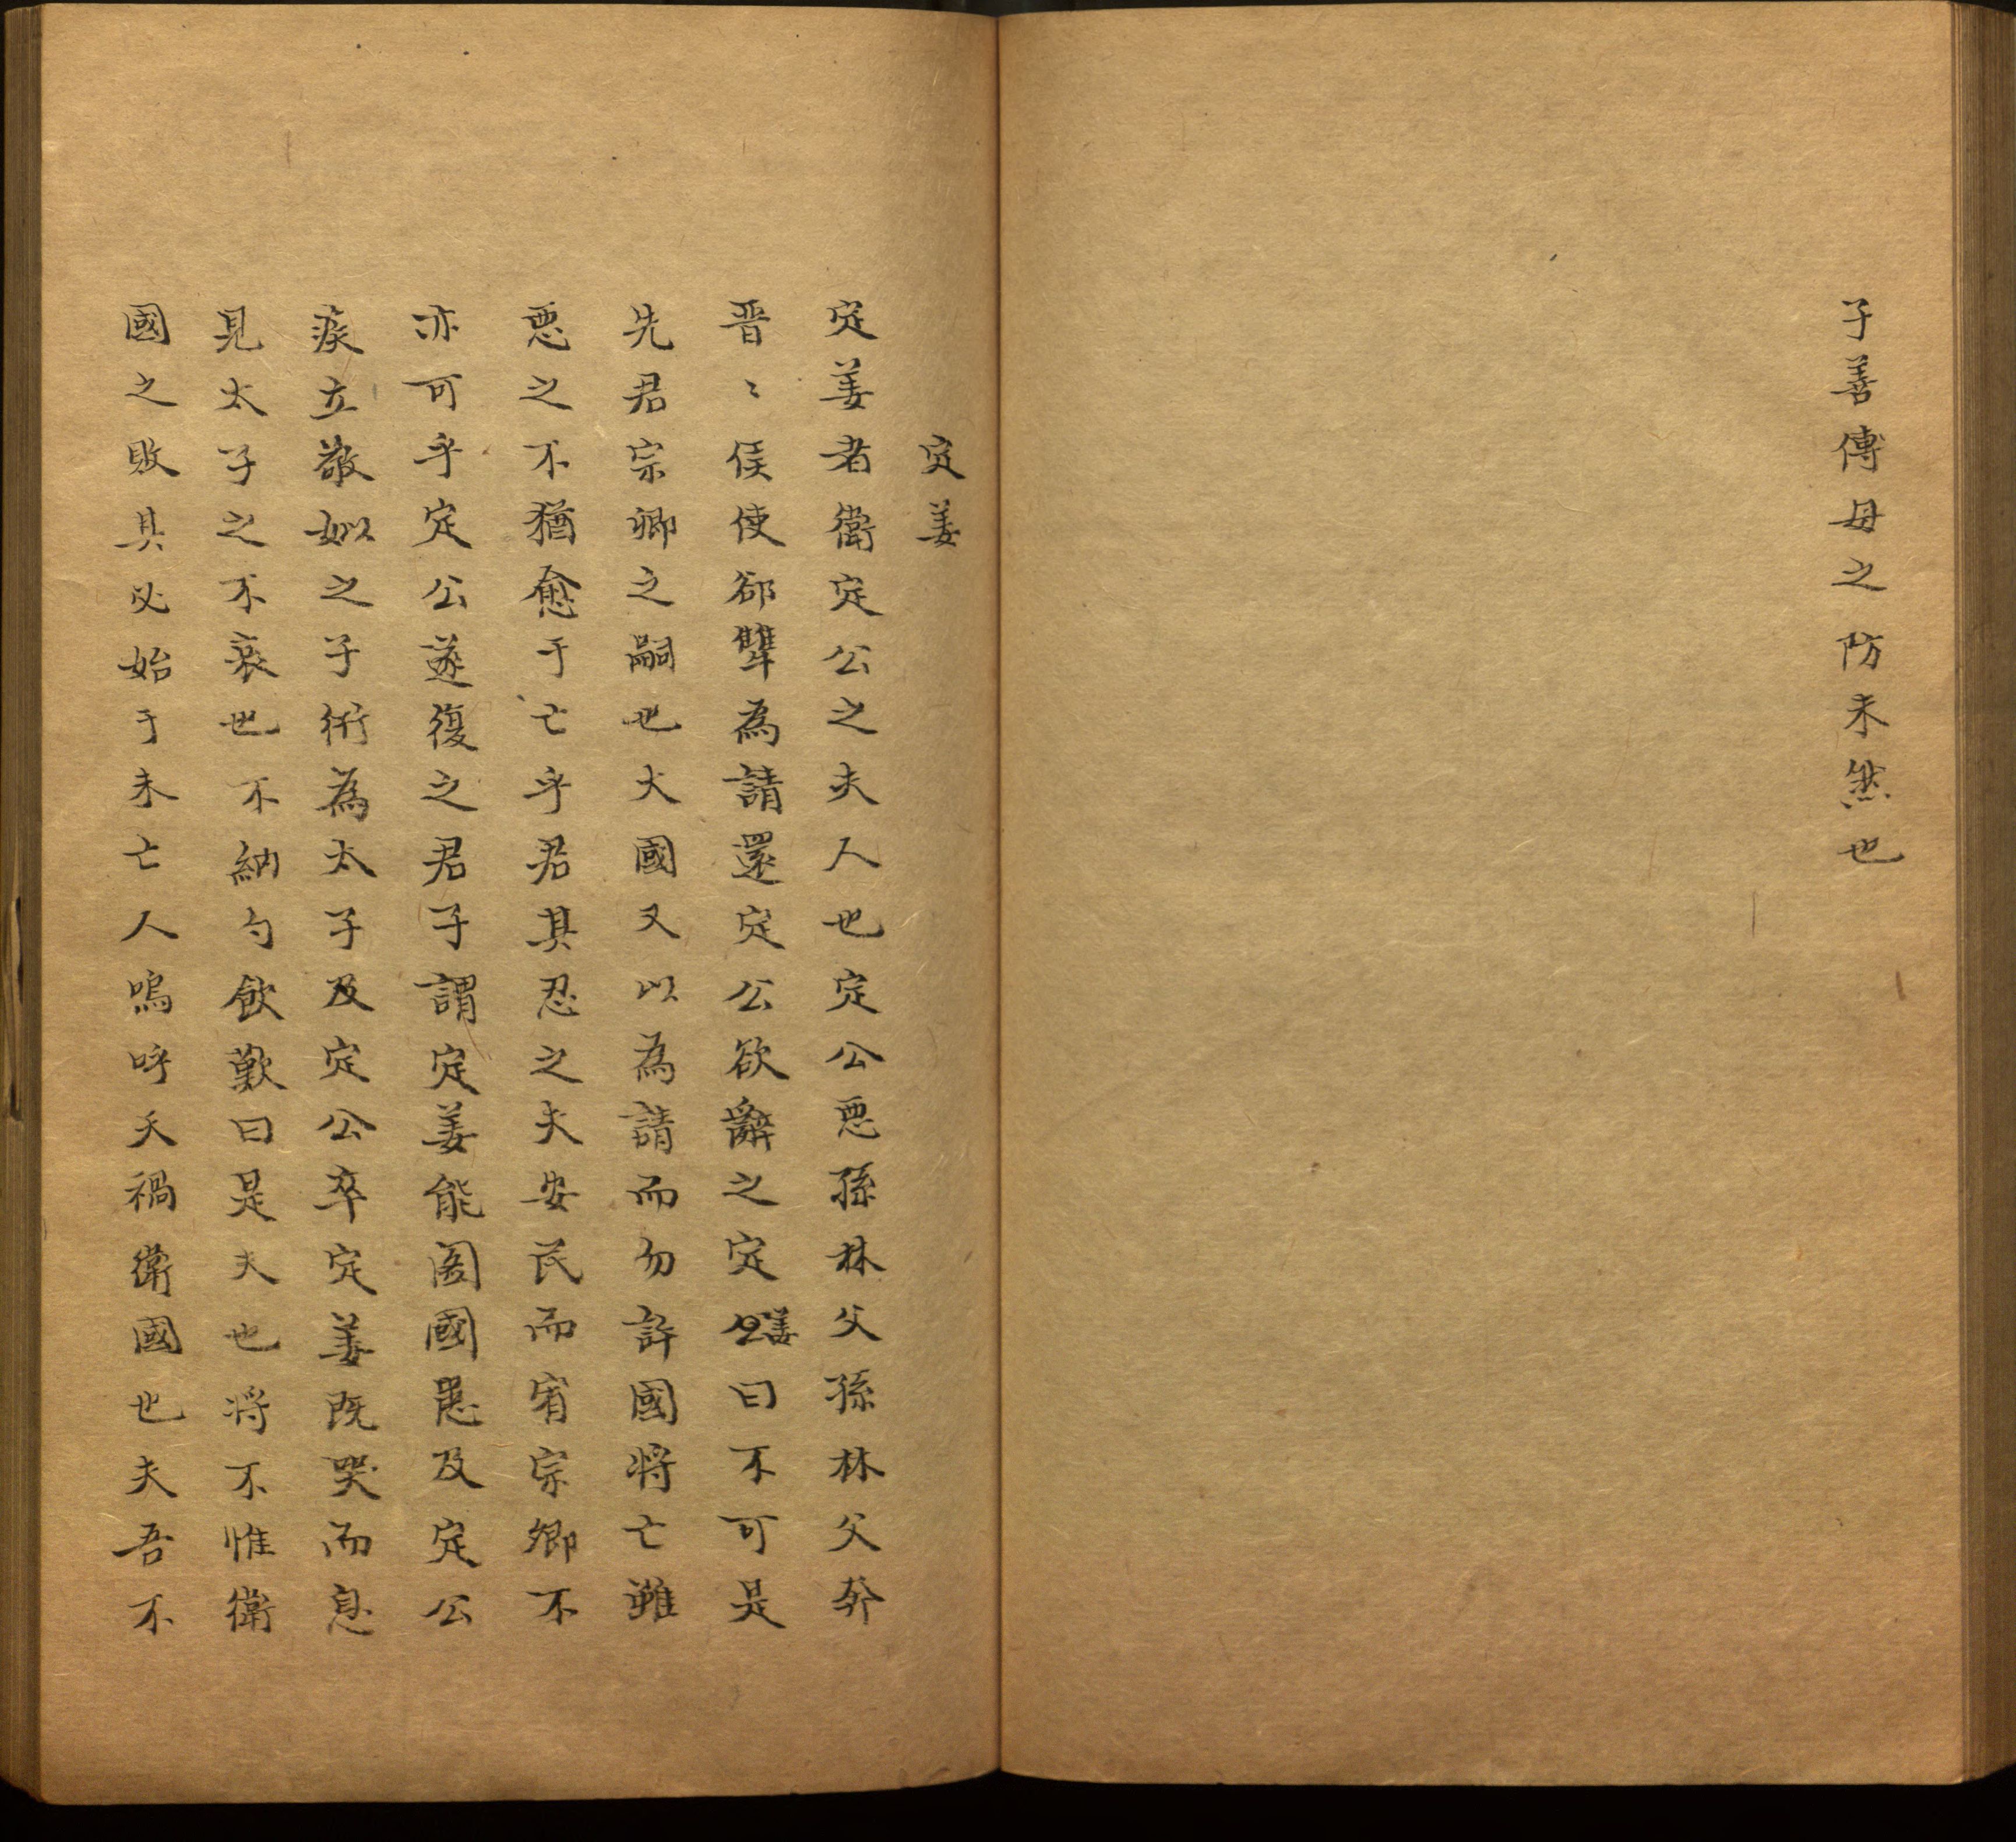 子善傅母之防未然也
定姜
定姜者衛定公之夫人也定公惡孫林父孫林父奔
晋〻侯使郤犫為請還定公欲辭之定姜曰不可是
先君宗卿之嗣也大國又以為請而勿許國將亡雖
惡之不猶愈于亡乎君其忍之夫安民而宥宗卿不
亦可乎定公遂復之君子謂定姜能圂國患及定公
疾立敬姒之子衎為太子及定公卒定姜既哭而息
見太子之不哀也不納勺飲歎曰是夫也將不惟衛
國之敗其必始于未亡人嗚呼天禍衛國也夫吾不